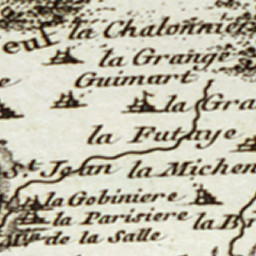 euf la Chalonnie
la Grange
Guimart
la Gra
la Futaye
St. Jean la Michen
la Gobiniere
la Parisiere la Br
de la Salle